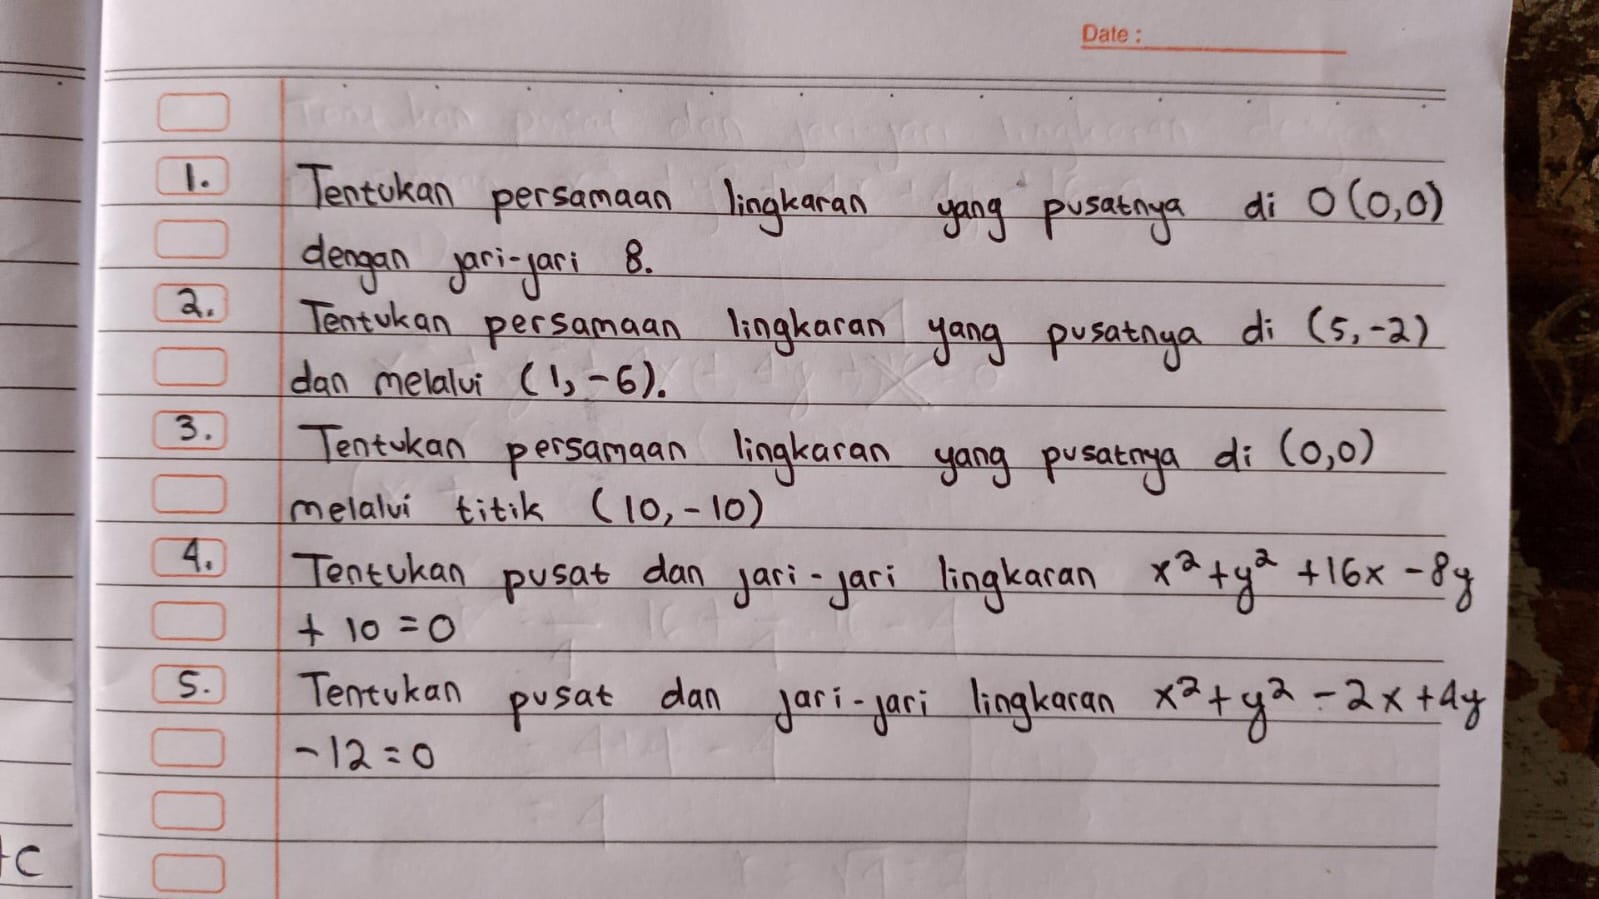 Date :
1. Tentukan persamaan lingkaran yang pusatnya di O (0,0)
dengan jari-jari 8.
2. Tentukan persamaan lingkaran yang pusatnya di (5,-2)
dan melalui (1,-6).
3. Tentukan persamaan lingkaran yang pusatnya di (0,0)
melalui titik (10,-10)
4. Tentukan pusat dan jari-jari lingkaran x²+y² +16x -8y
+ 10 =0
5. Tentukan pusat dan jari-jari lingkaran x²+y² -2x +4y
-12=0
+C